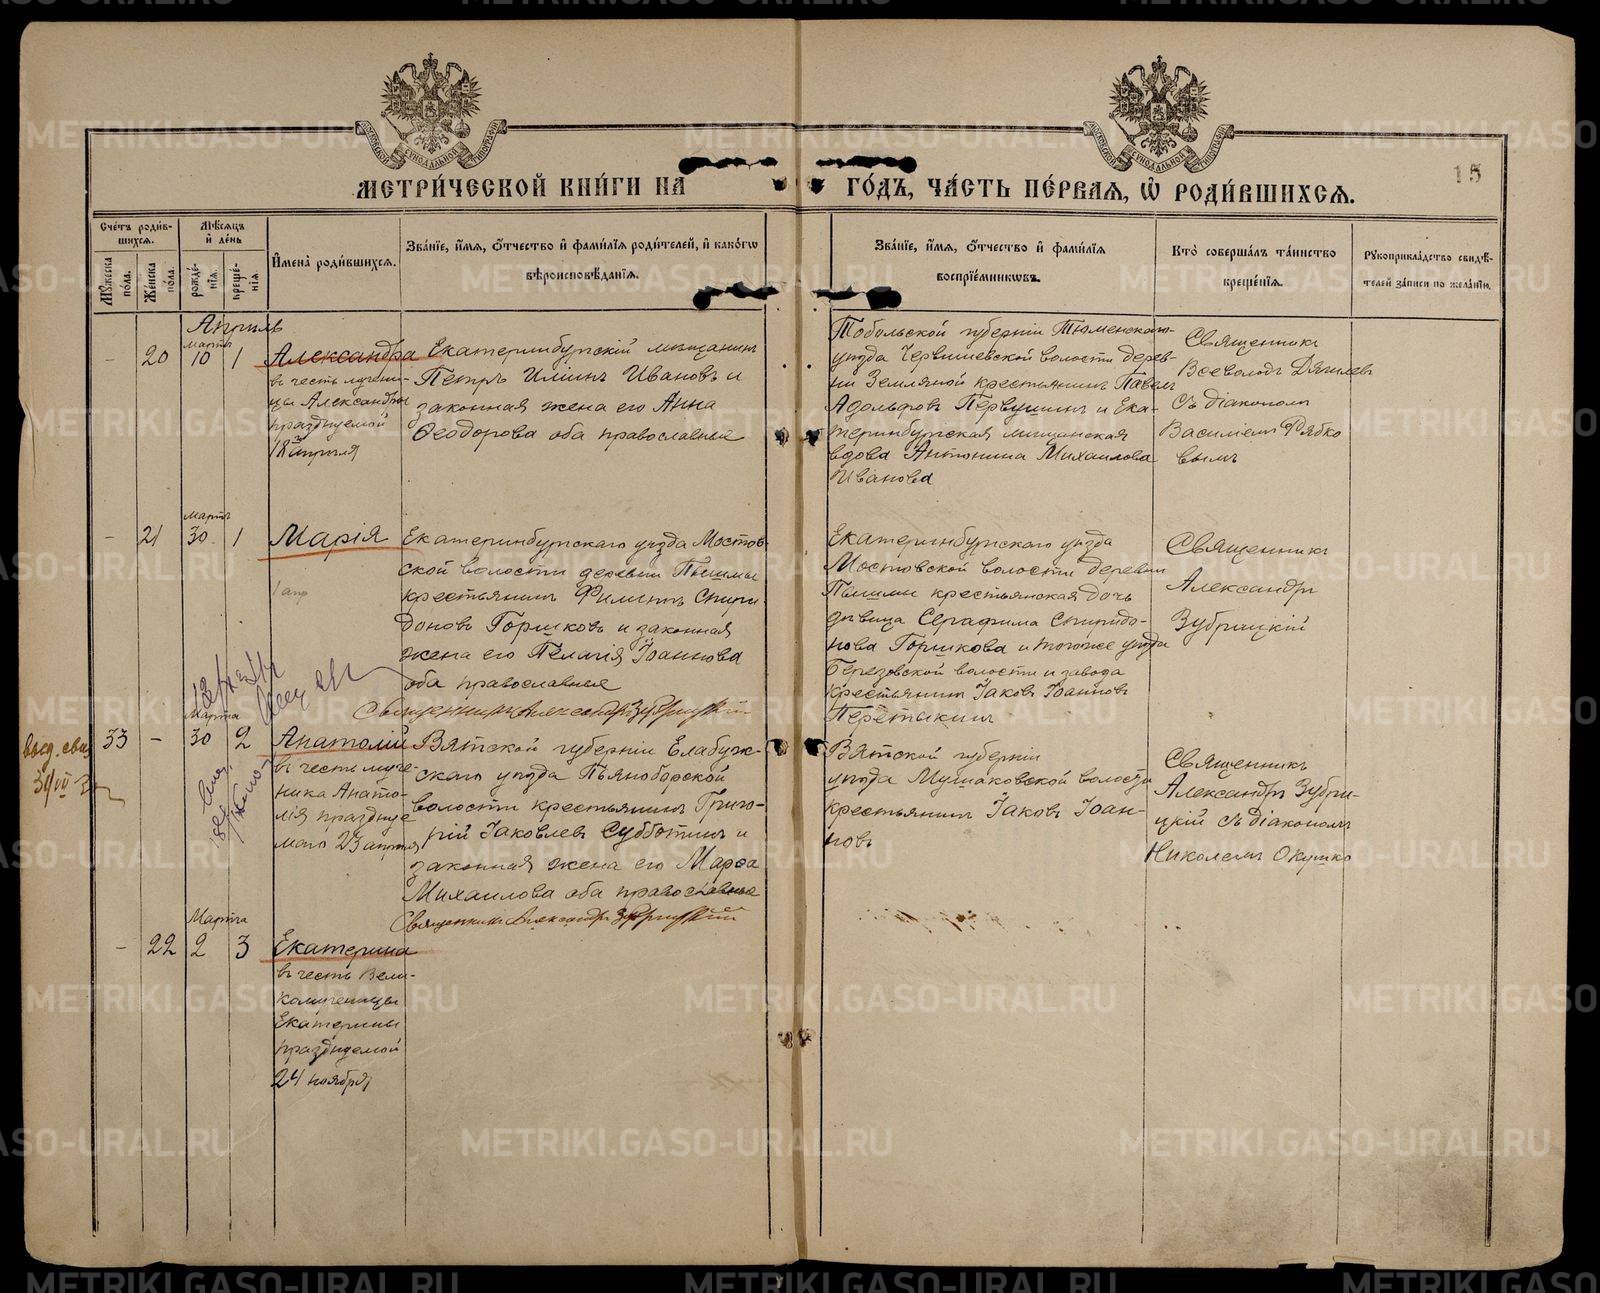 15
МЕТРИ́ЧЕСКОЙ КНИ́ГИ НА ГО́ДЪ, ЧА́СТЬ ПЕ́РВАЯ, Ѡ РОДИ́ВШИХСЯ.
Сче́тъ роди́в-
шихся.
Му́жеска по́ла.
Же́нска по́ла.
Мѣ́сяцъ
и де́нь
рожде́-
нія.
креще́-
нія.
Имена̀ роди́вшихся.
Зва́ніе, и́мя, о́тчество и фами́лія роди́телей, и како́гѡ
вѣроисповѣ́данія.
Зва́ніе, и́мя, о́тчество и фами́лія
воспріе́мниковъ.
Кто̀ соверша́лъ та́инство
креще́нія.
Рукоприкла́дство свидѣ́-
телей за́писи по жела́нію.
Апрѣль
–
20
Марта
10
1
Александра
въ честь мучени-
цы Александры
празднуемой
23 апрѣля
Екатеринбургскій мѣщанинъ
Петръ Иліинъ Ивановъ и
законная жена его Анна
Ѳеодорова оба православные
Тобольской губерніи Тюменскаго
уѣзда Червишевской волости дерев-
ни Земляной крестьянинъ Павелъ
Адольфовъ Первушинъ и Ека-
теринбургская мѣщанская
вдова Антонина Михаилова
Иванова
Священникъ
Всеволодъ Дягилевъ
съ діакономъ
Василіемъ Рябко
вымъ
–
21
Мартъ
30
1
Марія
1 апр
Екатеринбургскаго уѣзда Мостов-
ской волости деревни Пышмы
крестьянинъ Филиппъ Спири-
доновъ Горшковъ и законная
жена его Пелагія Іоаннова
оба православные
Священникъ Александръ Зубрицкій
Екатеринбургскаго уѣзда
Мостовской волости деревни
Пышмы крестьянская дочь
дѣвица Серафима Спиридо-
нова Горшкова и того же уѣзда
Березовской волости и завода
крестьянинъ Іаковъ Іоанновъ
Перетыкинъ
Священникъ
Александръ
Зубрицкій
33
–
Марта
30
2
Анатолій
въ честь муче-
ника Анато-
лія праздну е-
маго 23 апрѣля
Вятской губерніи Елабуж-
скаго уѣзда Пьяноборской
волости крестьянинъ Григо-
рій Іаковлевъ Субботинъ и
законная жена его Марѳа
Михаилова оба православные
Священникъ Александръ Зубрицкій
Вятской губерніи
уѣзда Мушаковской волости
крестьянинъ Іаковъ Іоан-
новъ
Священникъ
Александръ Зубри-
цкій съ діакономъ
Николаемъ Окушко
–
22
Марта
2
3
Екатерина
въ честь Вели-
комученицы
Екатерины
празднуемой
24 ноября